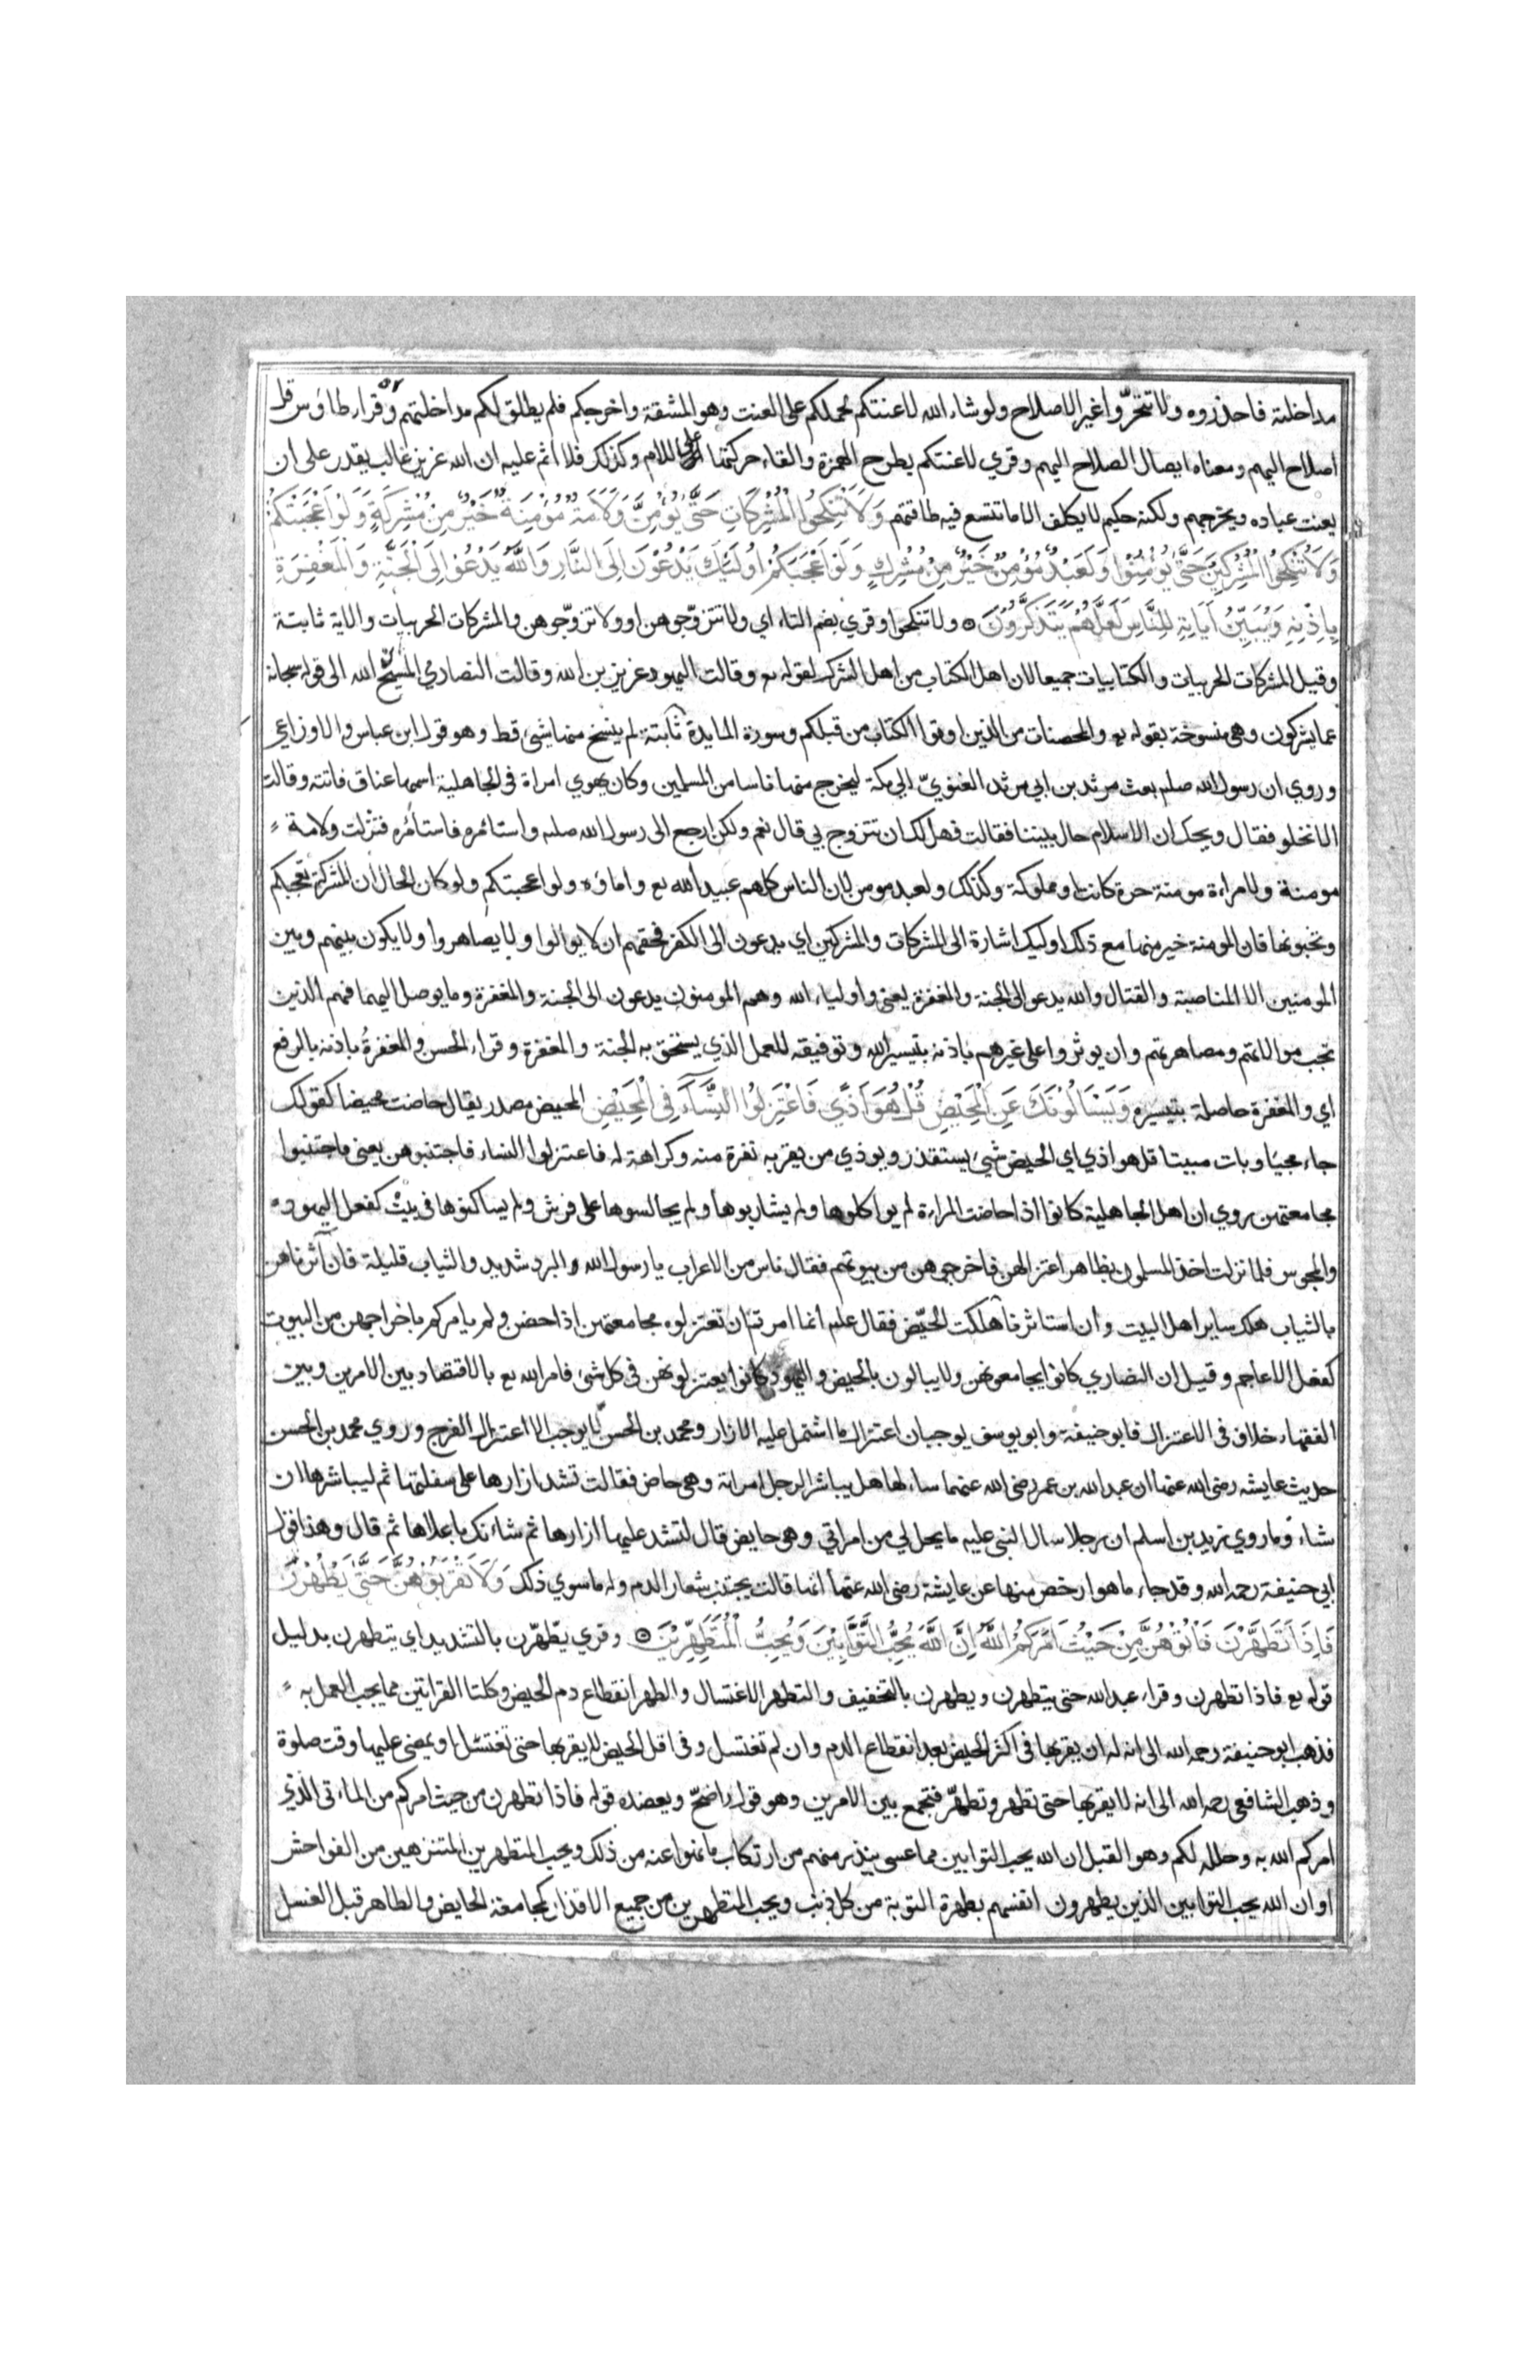 مداخلته فاحذروه ولا تتحرّوا غير الاصلاح ولو شاء الله لاعنتكم لحملكم على العنت وهو المشقة واحرجكم فلم يطلق لكم مداخلتهم وقراء طاؤس قل
اصلاح اليهم ومعناه ايصال الصلاح اليهم وقري لاعنتكم بطرح الهمزة والقاء حركتها على اللام وكذلك فلا اثم عليه ان الله عزيز غالب يقدر على ان
يعنت عباده ويحرجهم ولكنه حكيم لا يكلف الا ما تتسع فيه طاقتهم وَلَا تَنْكِحُوا الْمُشْرِكَاتِ حَتَّى يُؤْمِنَّ وَلَاَمَةٌ مُؤْمِنَةٌ خَيْرٌ مِنْ مُشْرِكَةٍ وَلَوْ اَعْجَبَتْكُمْ
وَلَا تُنْكِحُوا الْمُشْرِكِينَ حَتَّى يُؤْمِنُوْا وَلَعَبْدٌ مُؤْمِنٌ خَيْرٌ مِنْ مُشْرِكٍ وَلَوْ اَعْجَبَكُمْ اُولَئِكَ يَدْعُوْنَ اِلَى النَّارِ وَاللَّهُ يَدْعُوا اِلَى الْجَنَّةِ وَالْمَغْفِرَةِ
بِاِذْنِهِ وَيُبَيِّنُ آيَاتِهِ لِلنَّاسِ لَعَلَّهُمْ يَتَذَكَّرُوْنَ ۞ ولا تنكحوا وقري بضم التاء اي ولا تتزوّجوهن او ولا تزوّجوهن والمشركات الحربيات والاية ثابتة
وقيل المشركات الحربيات والكتابيات جميعا لان اهل الكتاب من اهل الشرك لقوله تع وقالت اليهود عزير بن الله وقالت النصاري المسيح بن الله الى قوله سبحانه
عما يشركون وهي منسوخة بقوله تع والمحصنات من الذين اوتوا الكتاب من قبلكم وسورة المايدة ثابتة لم ينسخ منها شئ قط وهو قول ابن عباس والاوزاعي
وروي ان رسول الله صلعم بعث مرثد بن ابي مرثد الغنويّ الي مكة ليخرج منها ناسا من المسلمين وكان يهوي امراة في الجاهلية اسمها عناق فاتته وقالت
الا نخلو فقال ويحك ان الاسلام حال بيننا فقالت فهل لك ان تتزوج بي قال نعم ولكن ارجع الى رسول الله صلعم واستامره فاستامره فنزلت ولامة
مومنة ولامراءة مومنة حرة كانت او مملوكة وكذلك ولعبد مومن لان الناس كلهم عبيد الله تع واماؤه ولو اعجبتكم ولو كان الحال ان المشركة تعجبكم
وتحبونها فان المومنة خير منها مع ذلك اوليك اشارة الى المشركات والمشركين اي يدعون الى الكفر فحقهم ان لا يوالوا ولا يصاهروا ولا يكون بينهم وبين
المومنين الا المناصبة والقتال والله يدعو الى الجنة والمغفرة يعني واولياء الله وهم المومنون يدعون الى الجنة والمغفرة وما يوصل اليهما فهم الذين
تجب موالاتهم ومصاهرتهم وان يوثروا على غيرهم باذنه بتيسير الله وتوفيقه للعمل الذي يستحق به الجنة والمغفرة وقراء الحسن والمغفرةُ باذنه بالرفع
اي والمغفرة حاصلة بتيسيره وَيَسْئَلُوْنَكَ عَنِ الْمَحِيْضِ قُلْ هُوَ اَذًي فَاعْتَزِلُوا النِّسَآءَ فِي الْمَحِيْضِ المحيض مصدر يقال حاضت محيضا كقولك
جاء مجيئا وبات مبيتا قل هو اذي اي الحيض شيء يستقذر ويوذي من يقربه نفرة منه وكراهة له فاعتزلوا النساء فاجتنبوهن يعني فاجتنبوا
مجامعتهن روي ان اهل الجاهلية كانوا اذا حاضت المراءة لم يواكلوها ولم يشاربوها ولم يجالسوها على فرش ولم يساكنوها في بيت كفعل اليهود
والمجوس فلما نزلت اخذ المسلمون بظاهر اعتزالهن فاخرجوهن من بيوتهم فقال ناس من الاعراب يا رسول الله والبرد شديد والثياب قليلة فان آثرناهن
بالثياب هلك ساير اهل البيت وان استاثرنا هلكت الحيّض فقال علم انما امرتم ان تعتزلوه مجامعتهن اذا حضن ولم يامركم باخراجهن من البيوت
كفعل الاعاجم وقيل ان النصاري كانوا يجامعونهن ولا يبالون بالحيض واليهود كانوا يعتزلونهن في كل شئ فامر الله تع بالاقتصاد بين الامرين وبين
الفقهاء خلاف في الاعتزال فابو حنيفة وابو يوسف يوجبان اعتزال ما اشتمل عليه الازار ومحمد بن الحسن لا يوجب الا اعتزال الفرج وروي محمد بن الحسن
حديث عايشه رضى الله عنها ان عبد الله بن عمر رضى الله عنهما ساءلها هل يباشر الرجل امراته وهي حاض فقالت تشد ازارها على سفلتها ثم ليباشرها ان
شاء وما روي زيد بن اسلم ان رجلا سال النبي عليه ما يحل لي من امراتي وهي حايض قال لتشد عليها ازارها ثم شاءنك باعلاها ثم قال وهذا قول
ابي حنيفة رحمه الله وقد جاء ما هو ارخص منها عن عايشة رضى الله عنها انها قالت يجتنب شعار الدم وله ما سوي ذلك وَلَا تَقْرَبُوْهُنَّ حَتَّى يَطْهُرْنَ
فَاِذَا تَطَهَّرْنَ فَاْتُوْهُنَّ مِنْ حَيْثُ اَمَرَكُمُ اللَّهُ اِنَّ اللَّهَ يُحِبُّ التَّوَّابِيْنَ وَيُحِبُّ الْمُتَطَهِّرِيْنَ ۞ وقري يطّهّرن بالتشديد اي يتطهرن بدليل
قوله تع فاذا تطهرن وقراء عبد الله حتى يتطهرن ويطهرن بالتخفيف والتطهر الاغتسال والطهر انقطاع دم الحيض وكلتا القراتين مما يجب العمل به
فذهب ابو حنيفة رحمه الله الى انه له ان يقربها في اكثر الحيض بعد انقطاع الدم وان لم تغتسل وفي اقل الحيض لا يقربها حتى تغتسل او يمضي عليها وقت صلوة
وذهب الشافعي رحمه الله الى انه لا يقربها حتى تطهر وتطهّر فتجمع بين الامرين وهو قول واضح ويعضده قوله فاذا تطهرن من حيث امركم من الماءتى الذي
امركم الله به وحلله لكم وهو القبل ان الله يحب التوابين مما عسى يندر منهم من ارتكاب ما نهوا عنه من ذلك ويحب المتطهرين المتنزهين من الفواحش
او ان الله يحب التوابين الذين يطهرون انفسهم بطهرة التوبة من كل ذنب ويحب المتطهرين من جميع الاقذار كمجامعة الحايض والطاهر قبل الغسل